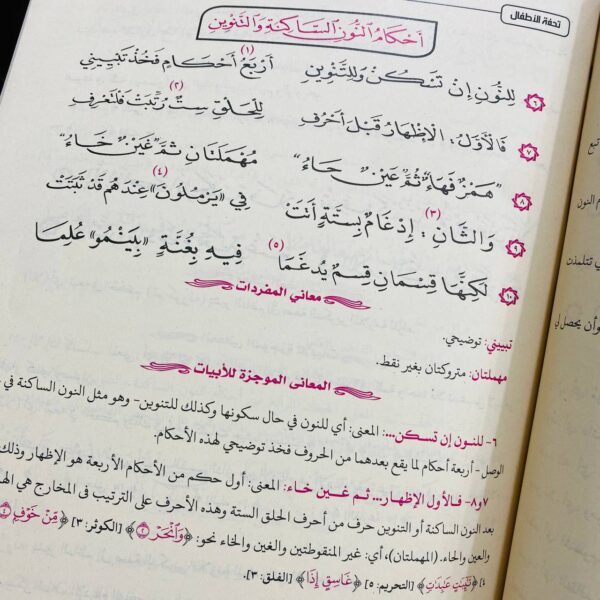 تحفة الأطفال
أَحْكَامُ النُّونِ السَّاكِنَةِ وَالتَّنْوِينِ
٦ لِلنُّونِ إِنْ تَسْكُنْ وَلِلتَّنْوِينِ أَرْبَعُ أَحْكَامٍ (١) فَخُذْ تَبْيِينِي
٧ فَالْأَوَّلُ: الْإِظْهَارُ قَبْلَ أَحْرُفِ لِلْحَلْقِ سِتٌّ (٢) رُتِّبَتْ فَلْتَعْرِفِ
٨ "هَمْزٌ فَهَاءٌ" ثُمَّ عَيْنٌ حَاءُ" مُهْمَلَتَانِ ثُمَّ "غَيْنٌ خَاءُ"
٩ وَالثَّانِ: إِدْغَامٌ (٣) بِسِتَّةٍ أَتَتْ فِي «يَرْمُلُونَ» (٤) عِنْدَهُمْ قَدْ ثَبَتَتْ
١٠ لَكِنَّهَا قِسْمَانِ قِسْمٌ يُدْغَمَا (٥) فِيهِ بِغُنَّةٍ «بِيَنْمُو» عُلِمَا
معاني المفردات
تبييني: توضيحي.
مهملتان: متروكتان بغير نقط.
المعاني الموجزة للأبيات
٦- للنون إن تسكن...: المعنى: أي للنون في حال سكونها وكذلك للتنوين- وهو مثل النون الساكنة في
الوصل- أربعة أحكام لما يقع بعدهما من الحروف فخذ توضيحي لهذه الأحكام.
٧و٨- فالأول الإظهار... ثم غين خاء: المعنى: أول حكم من الأحكام الأربعة هو الإظهار وذلك
بعد النون الساكنة أو التنوين حرف من أحرف الحلق الستة وهذه الأحرف على الترتيب في المخارج هي
والعين والحاء. (المهملتان)، أي: غير المنقوطتين والغين والخاء نحو: ﴿وَٱنْحَرْ ٢﴾ [الكوثر: ٣] ﴿مِّنْ خَوْفٍ
[التحريم: ٥] ﴿غَاسِقٍ إِذَا﴾ [الفلق: ٣].